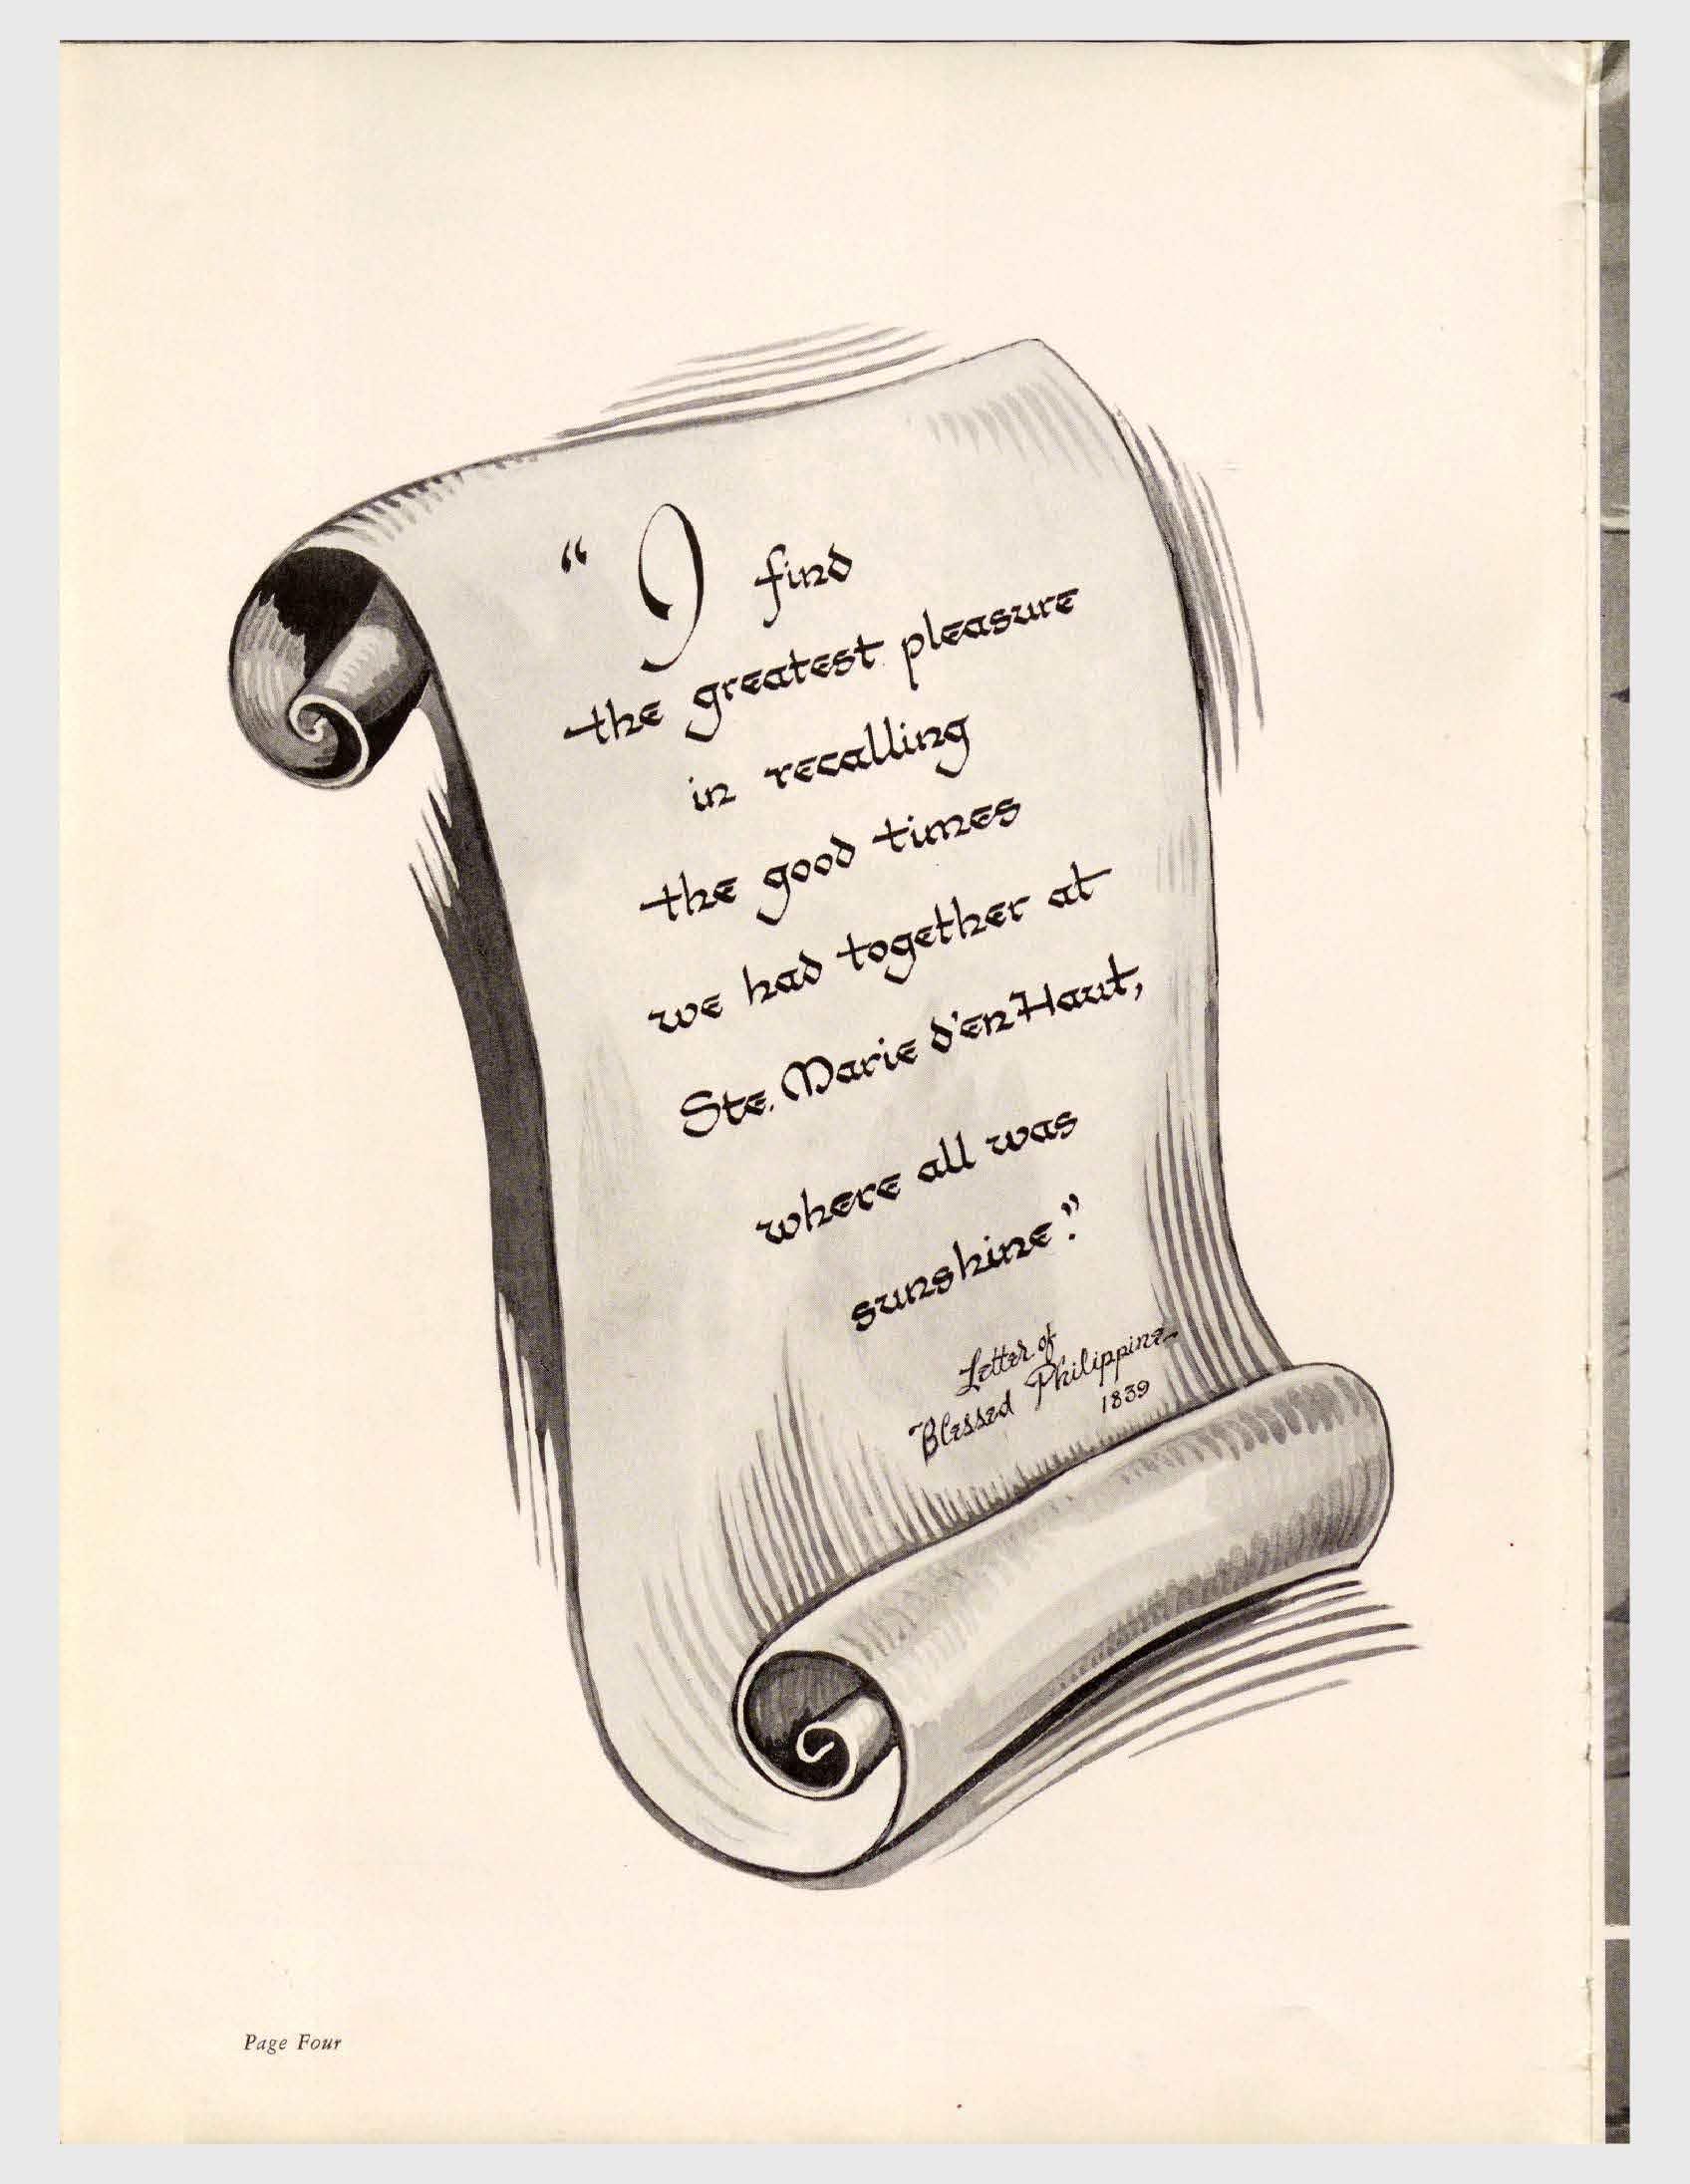 “ I find
the greatest pleasure
in recalling
the good times
we had together at
Ste. Marie d'en Haut,
where all was
sunshine.”
Letter of
Blessed Philippine
1839
Page Four